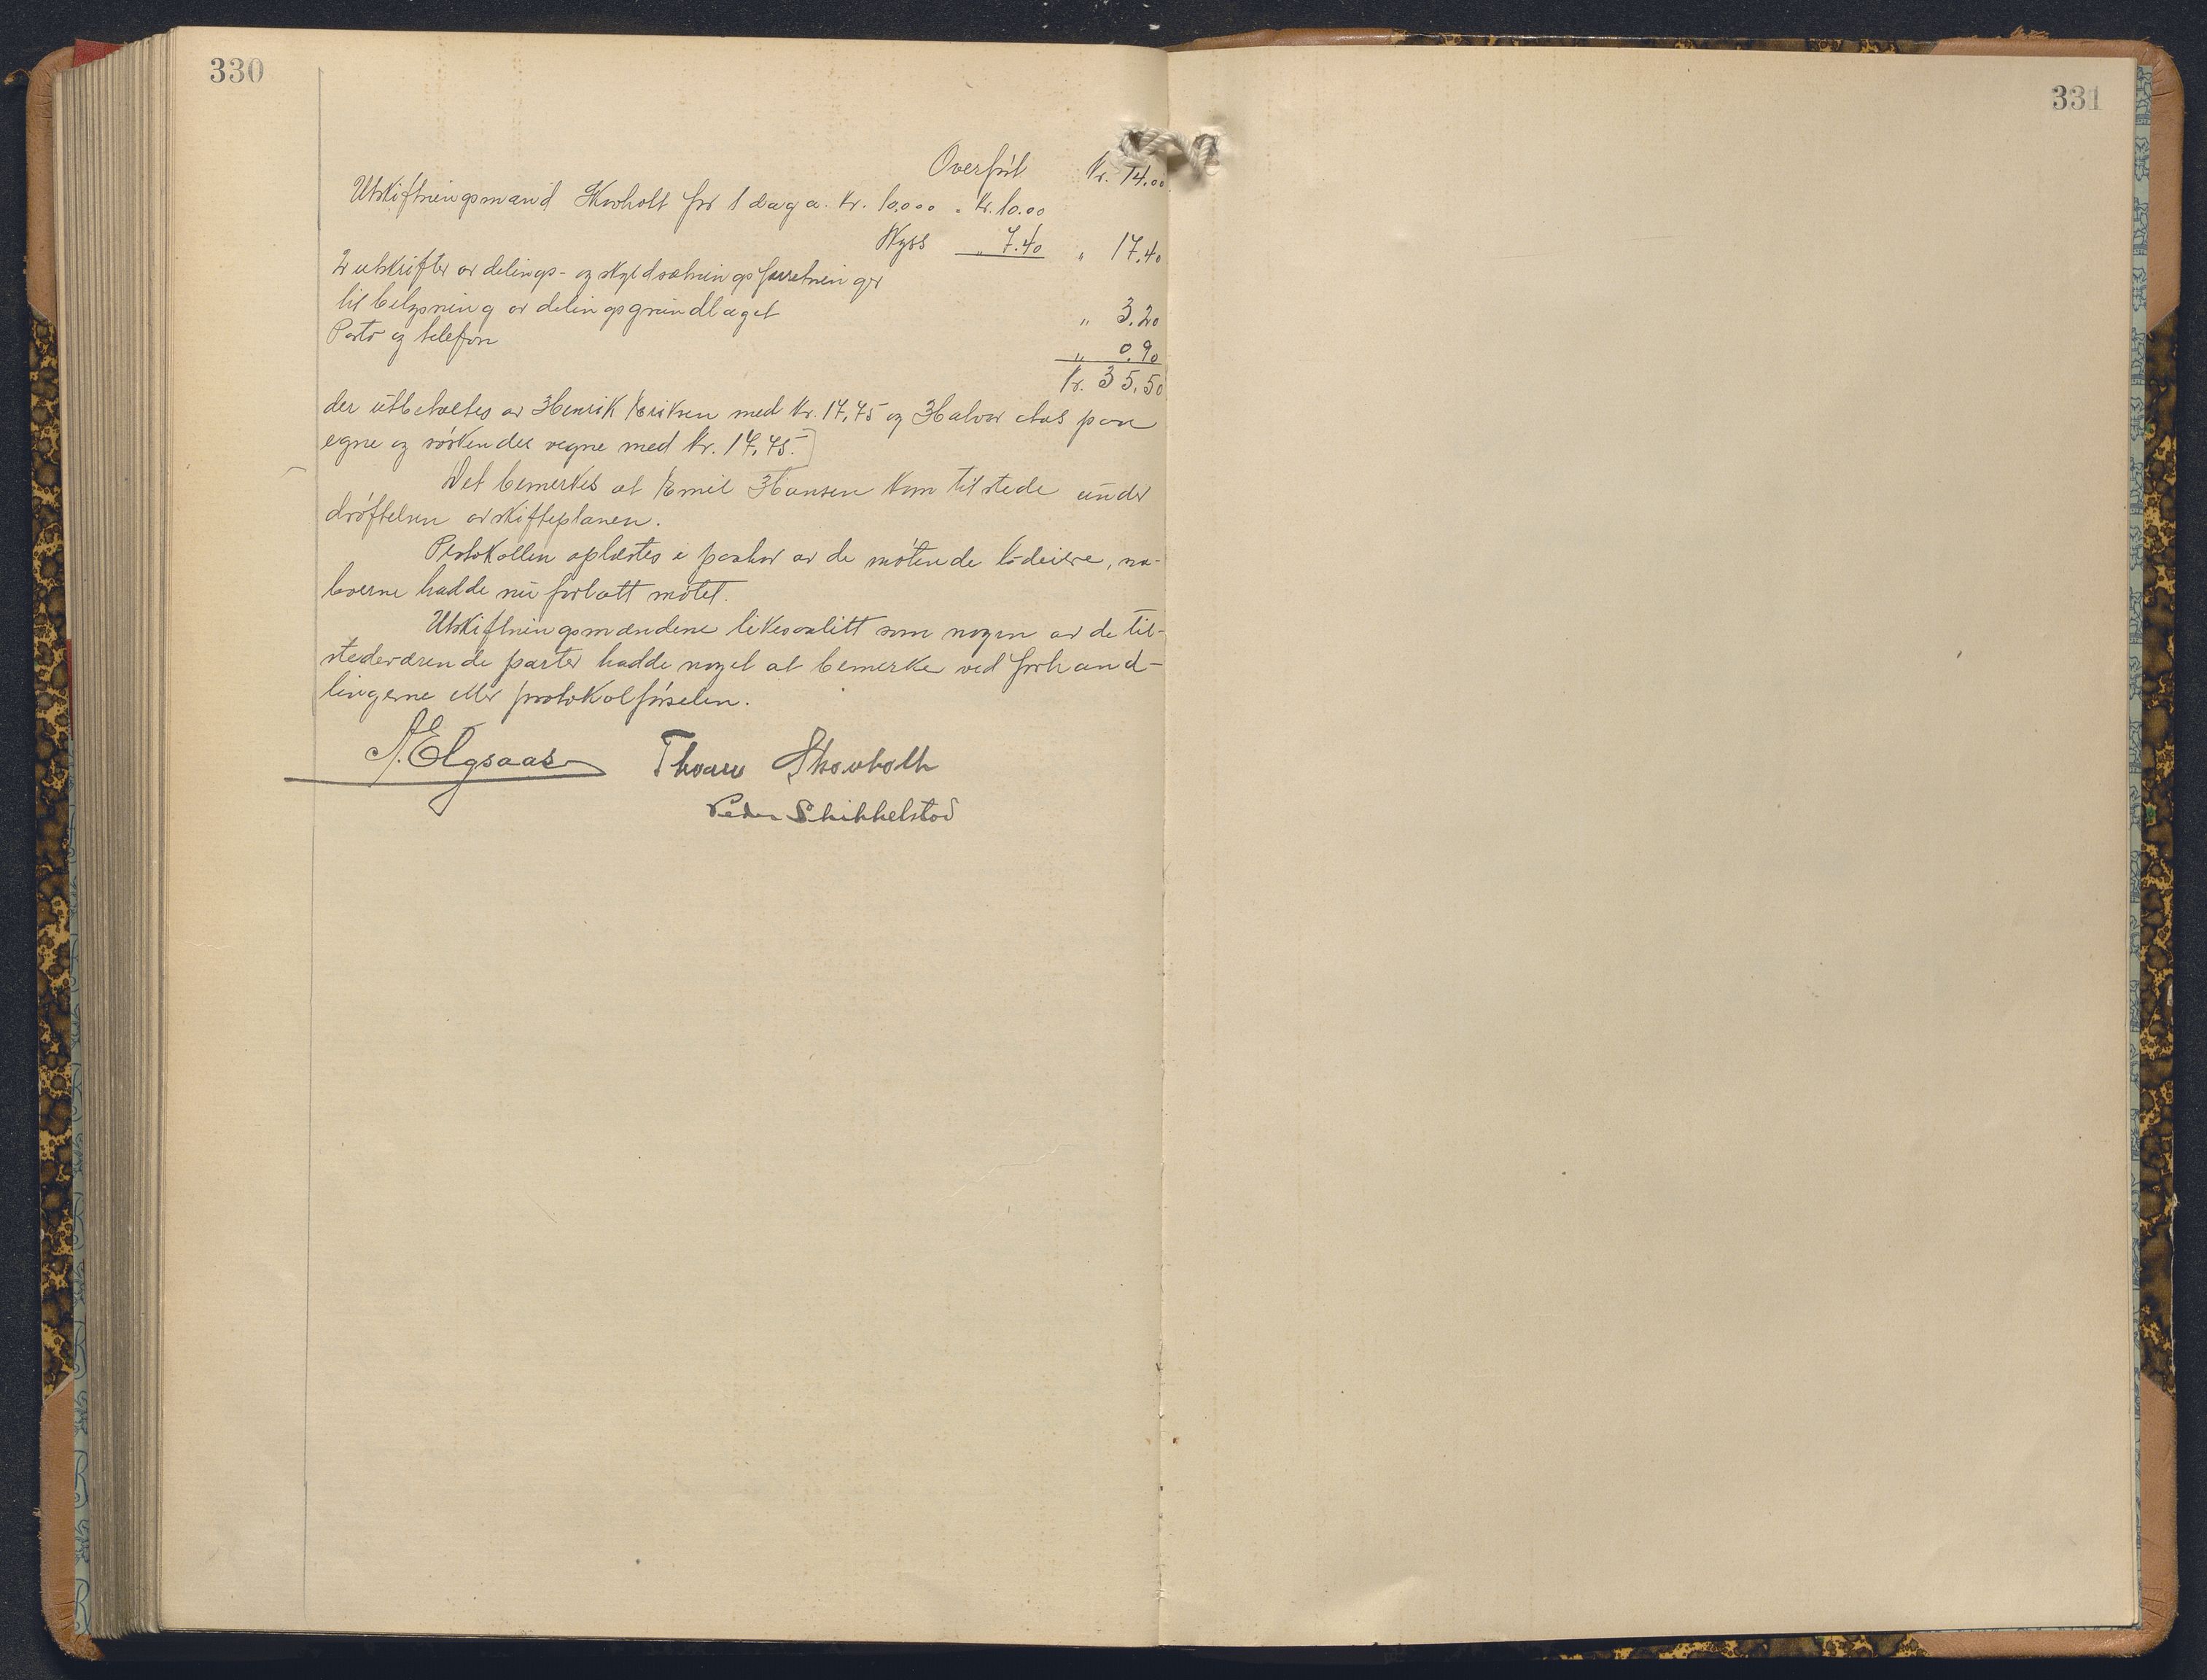 330
331
Overført Kr. 14.00
Utskiftningsmand Skovholt for 1 dag a. kr. 10.00 = kr. 10.00
Skyss " 7.40 " 17.40
2 utskrifter av delings- og skyldsætningsforretninger
til belysning av delingsgrundlaget " 3.20
Porto og telefon " 0.90
Kr. 35.50
der utbetaltes av Henrik Eriksen med kr. 17,75 og Halvor Aas paa
egne og søskendes vegne med kr. 17,75.]
Det bemerkes at Emil Hansen kom tilstede under
drøftelsen av skifteplanen.
Protokollen oplæstes i paahør av de møtende lodeiere, na-
boerne hadde nu forlatt møtet.
Utskiftningsmændene likesaalitt som nogen av de til-
stedeværende parter hadde noget at bemerke ved forhand-
lingerne eller protokolførselen.
A. Elgsaas Thoralv Skovholth
Peder Skikkelstad